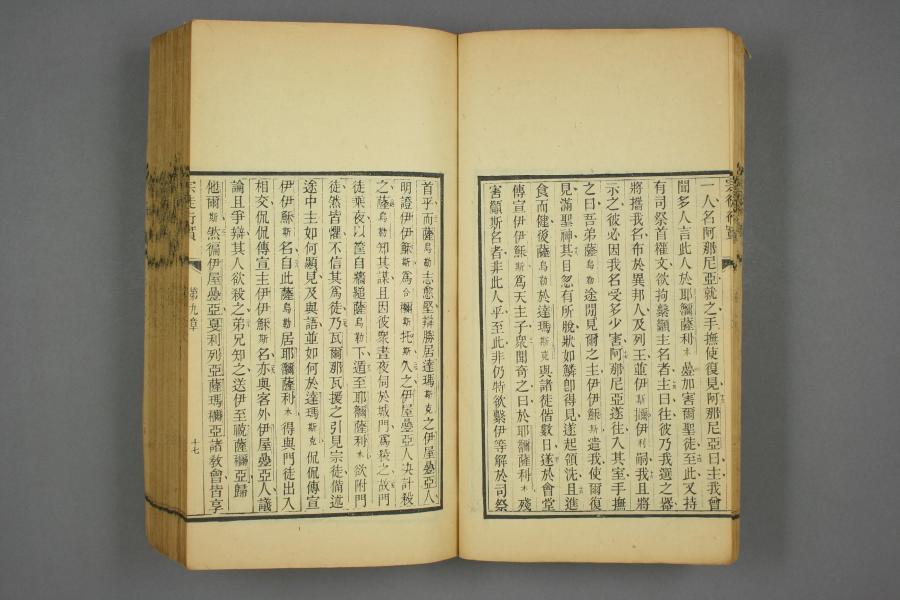 一人名阿那尼亞就之手撫使復見阿那尼亞曰主我曾
聞多人言此人於耶嚪薩利木曡加害爾聖徒至此又持
有司祭首權文欲拘繫龥主名者主曰往彼乃我選之器
將攜我名布於異邦人及列王並伊斯攦伊利嗣我且將
示之彼必因我名受多少害阿那尼亞遂往入其室手撫
之曰吾弟薩烏勒途間見爾之主伊伊穌斯遣我使爾復
見滿聖神其目忽有所脫狀如鱗卽得見遂起領洗且進
食而健後薩烏勒於達瑪斯克與諸徒偕數日遂於會堂
傳宣伊伊穌斯爲天主子衆聞奇之曰於耶嚪薩利木殘
害龥斯名者非此人乎至此非仍特欲繫伊等解於司祭
宗徒行實
首乎而薩烏勒志愈堅辯勝居達瑪斯克之伊屋曡亞人
明證伊伊穌斯爲合嚪斯托斯久之伊屋曡亞人決計殺
之薩烏勒知其謀且因彼衆晝夜伺於城門爲殺之故門
徒乘夜以筐自牆縋薩烏勒下遁至耶嚪薩利木欲附門
徒然皆懼不信其爲徒乃瓦爾那瓦援之引見宗徒備述
途中主如何顯見及與語並如何於達瑪斯克侃侃傳宣
伊伊穌斯名自此薩烏勒居耶嚪薩利木得與門徒出入
相交侃侃傳宣主伊伊穌斯名亦與客外伊屋曡亞人議
論且爭辯其人欲殺之弟兄知之送伊至
他爾斯然徧伊屋曡亞戛利列亞薩瑪攦亞諸敎會皆享
宗徒行實
第九章
十七